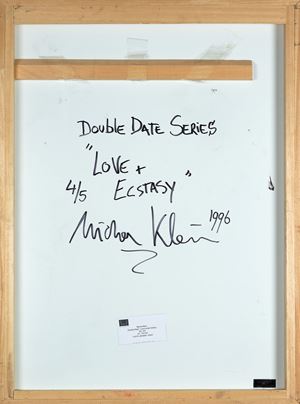 DOUBLE DATE SERIES
"LOVE +
4/5 ECSTASY"
Michel Klein 1996